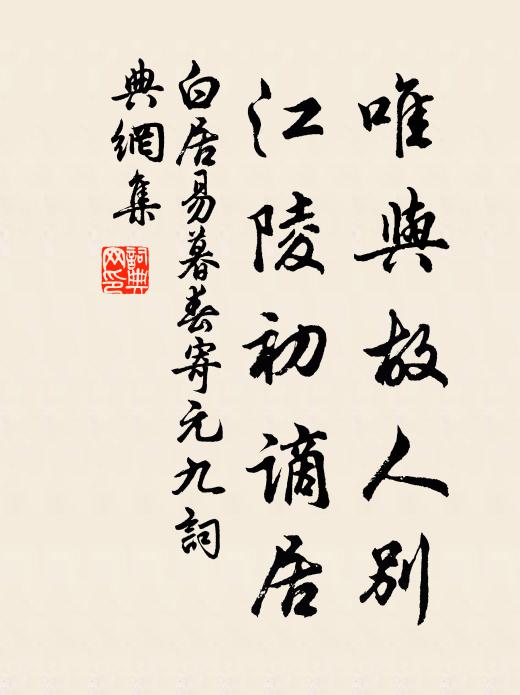 唯與故人別
江陵初謫居
白居易暮春寄元九詞
典網集
詞典
網印